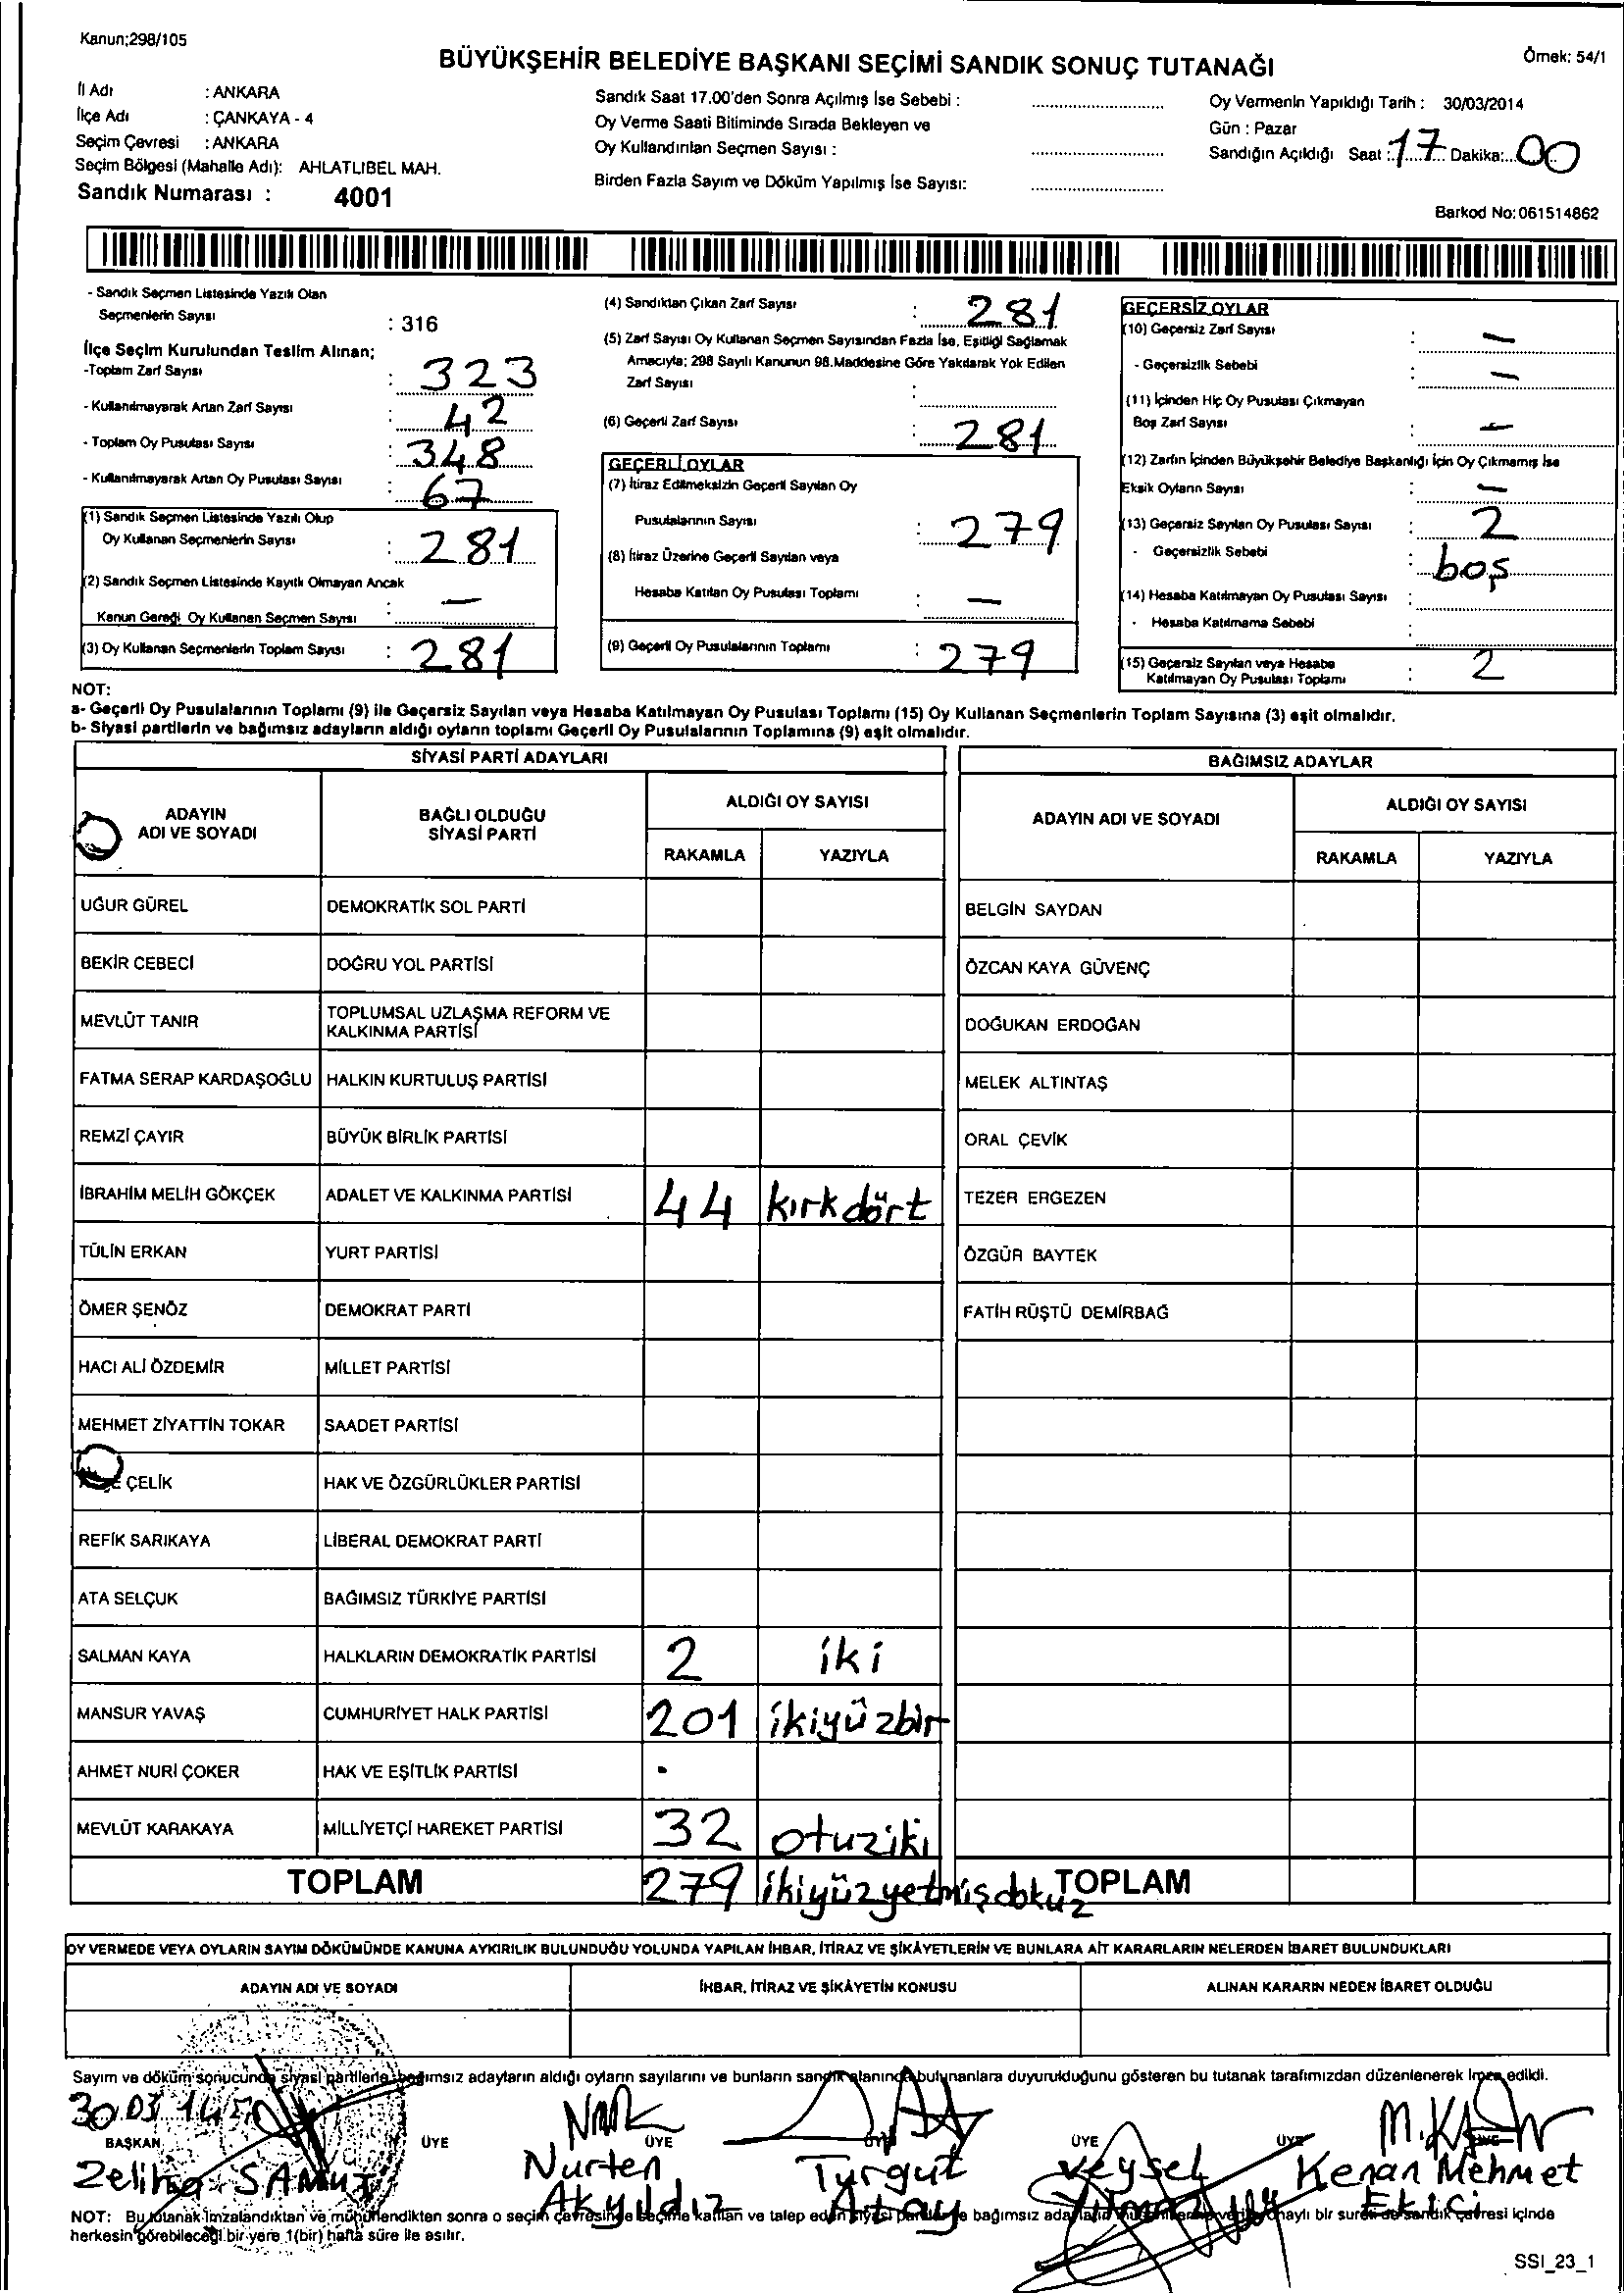 Kanun;298/105
BÜYÜKŞEHİR BELEDİYE BAŞKANI SEÇİMİ SANDIK SONUÇ TUTANAĞI
Örnek: 54/1
İl Adı : ANKARA
İlçe Adı : ÇANKAYA - 4
Seçim Çevresi : ANKARA
Seçim Bölgesi (Mahalle Adı): AHLATLIBEL MAH.
Sandık Numarası : 4001
Sandık Saat 17.00'den Sonra Açılmış İse Sebebi :
Oy Verme Saati Bitiminde Sırada Bekleyen ve
Oy Kullandırılan Seçmen Sayısı :
Birden Fazla Sayım ve Döküm Yapılmış İse Sayısı:
Oy Vermenin Yapıldığı Tarih : 30/03/2014
Gün : Pazar
Sandığın Açıldığı Saat : 17 Dakika: 00
Barkod No: 061514862
- Sandık Seçmen Listesinde Yazılı Olan
Seçmenlerin Sayısı : 316
İlçe Seçim Kurulundan Teslim Alınan;
-Toplam Zarf Sayısı : 323
- Kullanılmayarak Artan Zarf Sayısı : 42
- Toplam Oy Pusulası Sayısı : 348
- Kullanılmayarak Artan Oy Pusulası Sayısı : 67
(1) Sandık Seçmen Listesinde Yazılı Olup
Oy Kullanan Seçmenlerin Sayısı : 281
(2) Sandık Seçmen Listesinde Kayıtlı Olmayan Ancak
Kanun Gereği Oy Kullanan Seçmen Sayısı : —
(3) Oy Kullanan Seçmenlerin Toplam Sayısı : 281
(4) Sandıktan Çıkan Zarf Sayısı : 281
(5) Zarf Sayısı Oy Kullanan Seçmen Sayısından Fazla İse, Eşitliği Sağlamak
Amacıyla; 298 Sayılı Kanunun 98.Maddesine Göre Yakılarak Yok Edilen
Zarf Sayısı :
(6) Geçerli Zarf Sayısı : 281
GEÇERLİ OYLAR
(7) İtiraz Edilmeksizin Geçerli Sayılan Oy
Pusulalarının Sayısı : 279
(8) İtiraz Üzerine Geçerli Sayılan veya
Hesaba Katılan Oy Pusulası Toplamı : —
(9) Geçerli Oy Pusulalarının Toplamı : 279
GEÇERSİZ OYLAR
(10) Geçersiz Zarf Sayısı : —
- Geçersizlik Sebebi : —
(11) İçinden Hiç Oy Pusulası Çıkmayan
Boş Zarf Sayısı : —
(12) Zarfın İçinden Büyükşehir Belediye Başkanlığı İçin Oy Çıkmamış İse
Eksik Oyların Sayısı : —
(13) Geçersiz Sayılan Oy Pusulası Sayısı : 2
- Geçersizlik Sebebi : boş
(14) Hesaba Katılmayan Oy Pusulası Sayısı :
- Hesaba Katılmama Sebebi :
(15) Geçersiz Sayılan veya Hesaba
Katılmayan Oy Pusulası Toplamı : 2
NOT:
a- Geçerli Oy Pusulalarının Toplamı (9) ile Geçersiz Sayılan veya Hesaba Katılmayan Oy Pusulası Toplamı (15) Oy Kullanan Seçmenlerin Toplam Sayısına (3) eşit olmalıdır.
b- Siyasi partilerin ve bağımsız adayların aldığı oyların toplamı Geçerli Oy Pusulalarının Toplamına (9) eşit olmalıdır.
SİYASİ PARTİ ADAYLARI
ADAYIN ADI VE SOYADI
BAĞLI OLDUĞU SİYASİ PARTİ
ALDIĞI OY SAYISI
RAKAMLA YAZIYLA
UĞUR GÜREL DEMOKRATİK SOL PARTİ
BEKİR CEBECİ DOĞRU YOL PARTİSİ
MEVLÜT TANIR TOPLUMSAL UZLAŞMA REFORM VE KALKINMA PARTİSİ
FATMA SERAP KARDAŞOĞLU HALKIN KURTULUŞ PARTİSİ
REMZİ ÇAYIR BÜYÜK BİRLİK PARTİSİ
İBRAHİM MELİH GÖKÇEK ADALET VE KALKINMA PARTİSİ 44 kırkdört
TÜLİN ERKAN YURT PARTİSİ
ÖMER ŞENÖZ DEMOKRAT PARTİ
HACI ALİ ÖZDEMİR MİLLET PARTİSİ
MEHMET ZİYATTİN TOKAR SAADET PARTİSİ
ÇELİK HAK VE ÖZGÜRLÜKLER PARTİSİ
REFİK SARIKAYA LİBERAL DEMOKRAT PARTİ
ATA SELÇUK BAĞIMSIZ TÜRKİYE PARTİSİ
SALMAN KAYA HALKLARIN DEMOKRATİK PARTİSİ 2 iki
MANSUR YAVAŞ CUMHURİYET HALK PARTİSİ 201 ikiyüzbir
AHMET NURİ ÇOKER HAK VE EŞİTLİK PARTİSİ
MEVLÜT KARAKAYA MİLLİYETÇİ HAREKET PARTİSİ 32 otuziki
TOPLAM 279 ikiyüzyetmişdokuz
BAĞIMSIZ ADAYLAR
ADAYIN ADI VE SOYADI
ALDIĞI OY SAYISI
RAKAMLA YAZIYLA
BELGİN SAYDAN
ÖZCAN KAYA GÜVENÇ
DOĞUKAN ERDOĞAN
MELEK ALTINTAŞ
ORAL ÇEVİK
TEZER ERGEZEN
ÖZGÜR BAYTEK
FATİH RÜŞTÜ DEMİRBAĞ
TOPLAM
OY VERMEDE VEYA OYLARIN SAYIM DÖKÜMÜNDE KANUNA AYKIRILIK BULUNDUĞU YOLUNDA YAPILAN İHBAR, İTİRAZ VE ŞİKÂYETLERİN VE BUNLARA AİT KARARLARIN NELERDEN İBARET BULUNDUKLARI
ADAYIN ADI VE SOYADI
İHBAR, İTİRAZ VE ŞİKÂYETİN KONUSU
ALINAN KARARIN NEDEN İBARET OLDUĞU
Sayım ve döküm sonucunda siyasi partilerle bağımsız adayların aldığı oyların sayılarını ve bunların sandık alanında bulunanlara duyurulduğunu gösteren bu tutanak tarafımızdan düzenlenerek imza edildi.
30.03.14
BAŞKAN ÜYE ÜYE ÜYE ÜYE ÜYE ÜYE
Zeliha
Nurten Akyıldız
Turgut Atay
Veysel
Kenan Mehmet Ekici
NOT: Bu tutanak imzalandıktan ve mühürlendikten sonra o seçim çevresinde seçime katılan ve talep eden siyasi partilerle bağımsız bir sureti de sandık çevresi içinde
herkesin görebileceği bir yere 1(bir) hafta süre ile asılır.
SSI_23_1